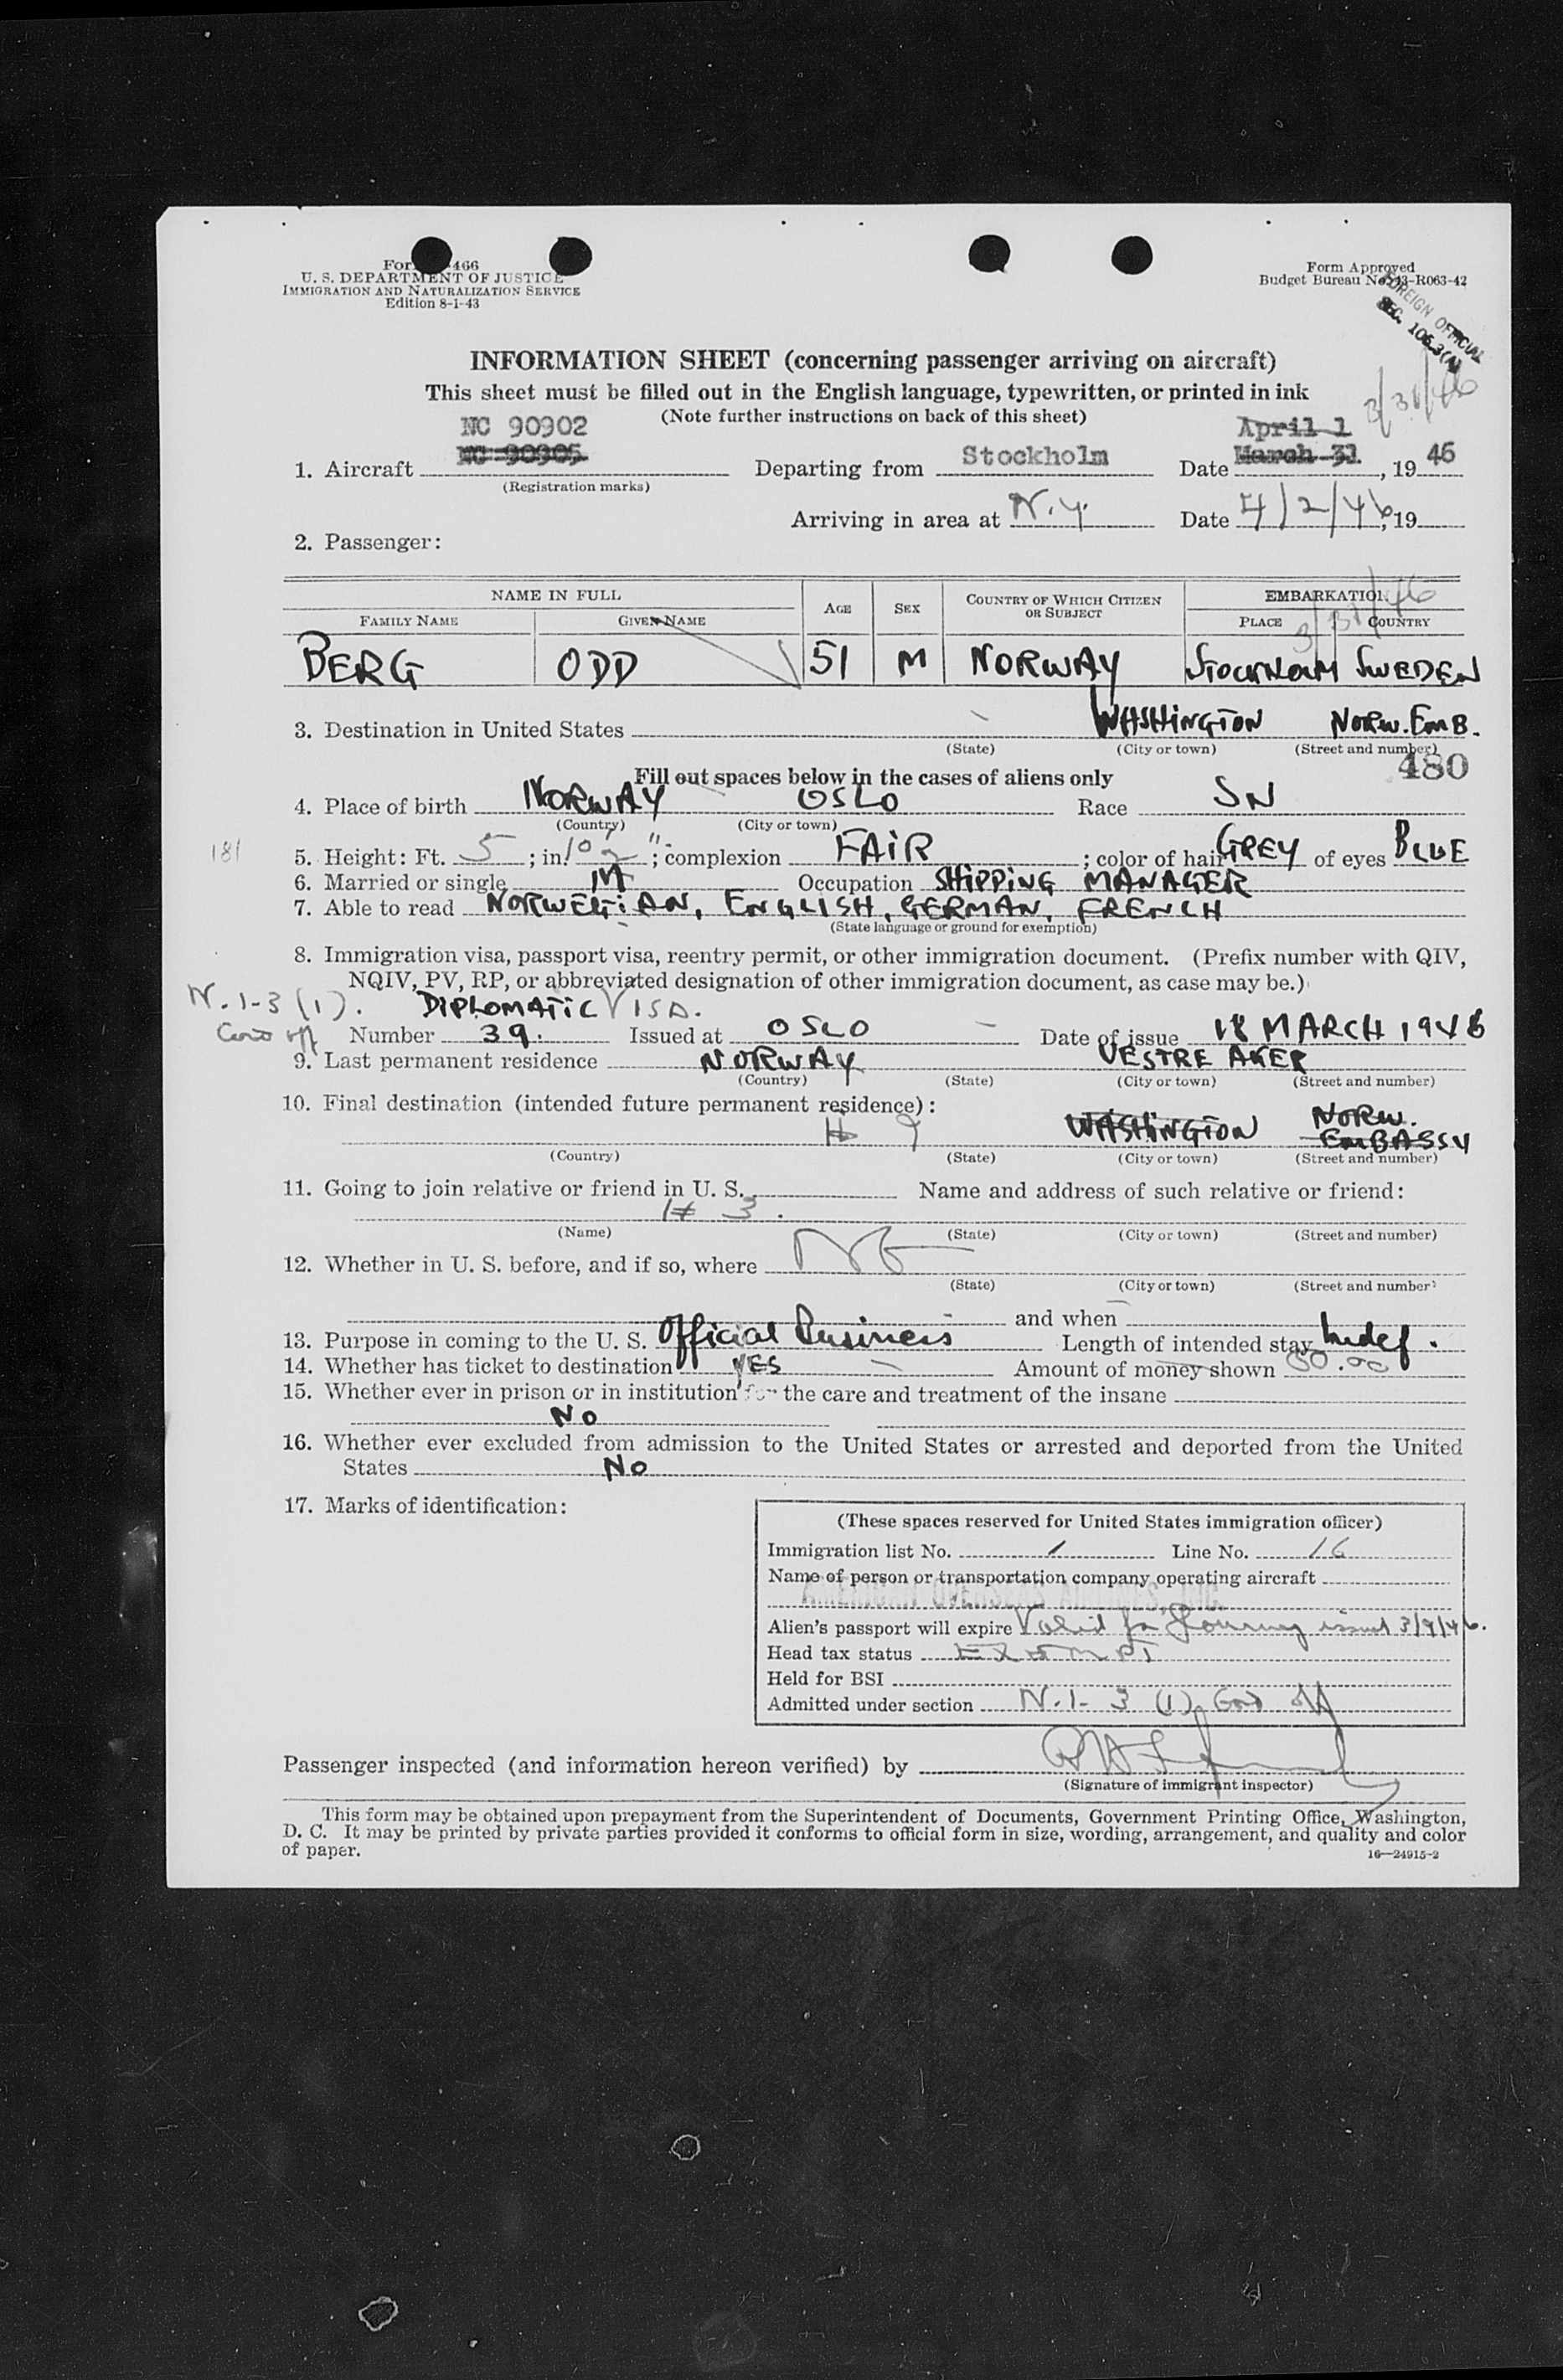 Form 466
U. S. DEPARTMENT OF JUSTICE
IMMIGRATION AND NATURALIZATION SERVICE
Edition 8-1-43
Form Approved
Budget Bureau No. 43-R063-42
FOREIGN OFFICIAL
SEC. 106.3(A)
3/31/46
INFORMATION SHEET (concerning passenger arriving on aircraft)
This sheet must be filled out in the English language, typewritten, or printed in ink
(Note further instructions on back of this sheet)
NC 90902 April 1
1. Aircraft NC 90905 Departing from Stockholm Date March 31, 1946
(Registration marks)
Arriving in area at N.Y. Date 4/2/46, 19
2. Passenger:
NAME IN FULL AGE SEX COUNTRY OF WHICH CITIZEN OR SUBJECT EMBARKATION
FAMILY NAME GIVEN NAME PLACE COUNTRY
3/31/46
BERG ODD 51 M NORWAY STOCKHOLM SWEDEN
3. Destination in United States WASHINGTON NORW. EMB.
(State) (City or town) (Street and number)
480
Fill out spaces below in the cases of aliens only
4. Place of birth NORWAY OSLO Race SN
(Country) (City or town)
181 5. Height: Ft. 5; in. 10 1/2"; complexion FAIR; color of hair GREY of eyes BLUE
6. Married or single M Occupation SHIPPING MANAGER
7. Able to read NORWEGIAN, ENGLISH, GERMAN, FRENCH
(State language or ground for exemption)
8. Immigration visa, passport visa, reentry permit, or other immigration document. (Prefix number with QIV,
NQIV, PV, RP, or abbreviated designation of other immigration document, as case may be.)
N. 1-3 (1). DIPLOMATIC VISA.
Number 39. Issued at OSLO Date of issue 18 MARCH 1946
9. Last permanent residence NORWAY VESTRE AKER
(Country) (State) (City or town) (Street and number)
10. Final destination (intended future permanent residence):
# 9 WASHINGTON NORW. EMBASSY
(Country) (State) (City or town) (Street and number)
11. Going to join relative or friend in U. S. Name and address of such relative or friend:
# 3.
(Name) (State) (City or town) (Street and number)
12. Whether in U. S. before, and if so, where No
(State) (City or town) (Street and number)
and when
13. Purpose in coming to the U. S. Official Business Length of intended stay Indef.
14. Whether has ticket to destination YES Amount of money shown 50.00
15. Whether ever in prison or in institution for the care and treatment of the insane
No
16. Whether ever excluded from admission to the United States or arrested and deported from the United
States No
17. Marks of identification:
(These spaces reserved for United States immigration officer)
Immigration list No. 1 Line No. 16
Name of person or transportation company operating aircraft
AMERICAN OVERSEAS AIRLINES, INC.
Alien's passport will expire Valid for Journey issued 3/9/46.
Head tax status EXEMPT
Held for BSI
Admitted under section N.1-3 (1) Gov off
Passenger inspected (and information hereon verified) by
(Signature of immigrant inspector)
This form may be obtained upon prepayment from the Superintendent of Documents, Government Printing Office, Washington,
D. C. It may be printed by private parties provided it conforms to official form in size, wording, arrangement, and quality and color
of paper.
16—24915-2